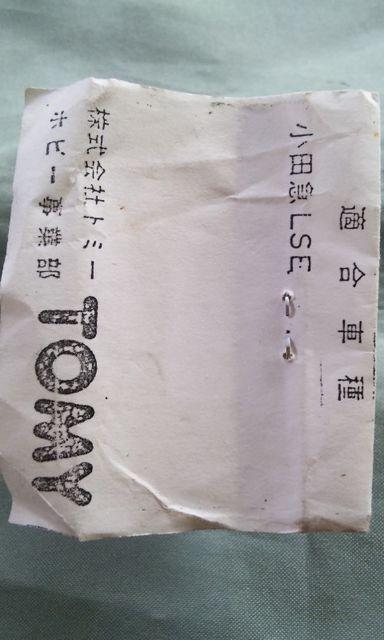 適合車種
小田急LSE
株式会社トミー
ホビー事業部
TOMY